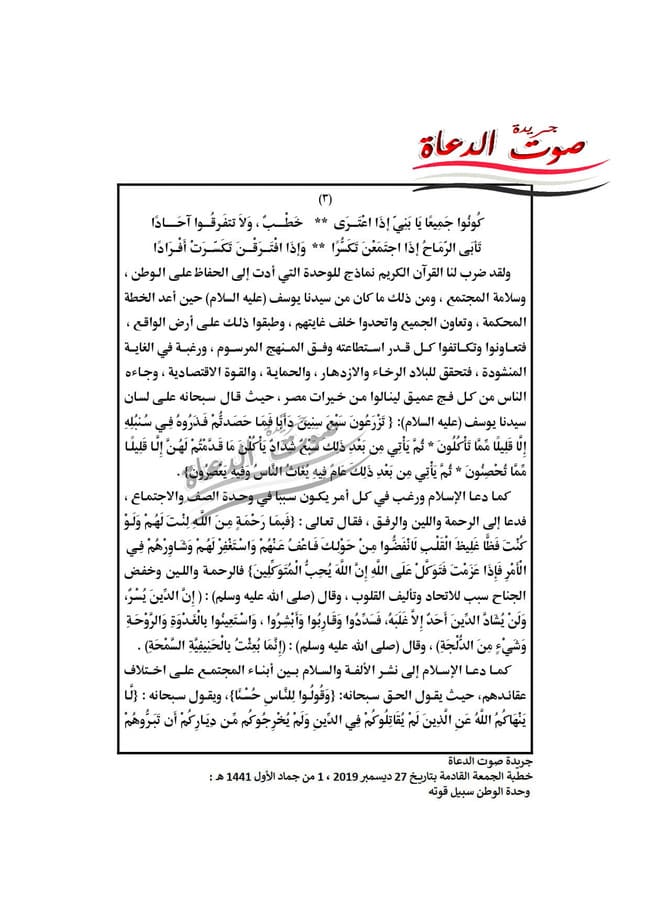 جريدة
صوت الدعاة
(٣)
كُونُوا جَمِيعًا يَا بَنِيّ إِذَا اعْتَرَى ** خَطْبٌ ، وَلاَ تتفرقُوا آحَادًا
تَأبَى الرِّمَاحُ إِذَا اجتَمَعْنَ تَكَسُّرًا ** وَإِذَا افْتَرَقْنَ تَكَسّرَتْ أَفْرَادًا
ولقد ضرب لنا القرآن الكريم نماذج للوحدة التي أدت إلى الحفاظ على الوطن ،
وسلامة المجتمع ، ومن ذلك ما كان من سيدنا يوسف (عليه السلام) حين أعد الخطة
المحكمة ، وتعاون الجميع واتحدوا خلف غايتهم ، وطبقوا ذلك على أرض الواقع ،
فتعاونوا وتكاتفوا كل قدر استطاعته وفق المنهج المرسوم ، ورغبة في الغاية
المنشودة ، فتحقق للبلاد الرخاء والازدهار ، والحماية ، والقوة الاقتصادية ، وجاءه
الناس من كل فج عميق لينالوا من خيرات مصر ، حيث قال سبحانه على لسان
سيدنا يوسف (عليه السلام): { تَزْرَعُونَ سَبْعَ سِنِينَ دَأَبًا فَمَا حَصَدتُّمْ فَذَرُوهُ فِي سُنْبُلِهِ
إِلَّا قَلِيلًا مِّمَّا تَأْكُلُونَ * ثُمَّ يَأْتِي مِن بَعْدِ ذَلِكَ سَبْعٌ شِدَادٌ يَأْكُلْنَ مَا قَدَّمْتُمْ لَهُنَّ إِلَّا قَلِيلًا
مِّمَّا تُحْصِنُونَ * ثُمَّ يَأْتِي مِن بَعْدِ ذَلِكَ عَامٌ فِيهِ يُغَاثُ النَّاسُ وَفِيهِ يَعْصِرُونَ} .
كما دعا الإسلام ورغب في كل أمر يكون سببًا في وحدة الصف والاجتماع ،
فدعا إلى الرحمة واللين والرفق ، فقال تعالى : {فَبِمَا رَحْمَةٍ مِنَ اللَّهِ لِنْتَ لَهُمْ وَلَوْ
كُنْتَ فَظًّا غَلِيظَ الْقَلْبِ لَانْفَضُّوا مِنْ حَوْلِكَ فَاعْفُ عَنْهُمْ وَاسْتَغْفِرْ لَهُمْ وَشَاوِرْهُمْ فِي
الْأَمْرِ فَإِذَا عَزَمْتَ فَتَوَكَّلْ عَلَى اللَّهِ إِنَّ اللَّهَ يُحِبُّ الْمُتَوَكِّلِينَ} فالرحمة واللين وخفض
الجناح سبب للاتحاد وتأليف القلوب ، وقال (صلى الله عليه وسلم) : ( إِنَّ الدِّينَ يُسْرٌ،
وَلَنْ يُشَادَّ الدِّينَ أَحَدٌ إِلاَّ غَلَبَهُ، فَسَدِّدُوا وَقَارِبُوا وَأَبْشِرُوا ، وَاسْتَعِينُوا بِالْغَدْوَةِ وَالرَّوْحَةِ
وَشَيْءٍ مِنَ الدُّلْجَةِ) ، وقال (صلى الله عليه وسلم) : (إِنَّمَا بُعِثْتُ بِالْحَنِيفِيَّةِ السَّمْحَةِ) .
كما دعا الإسلام إلى نشر الألفة والسلام بين أبناء المجتمع على اختلاف
عقائدهم، حيث يقول الحق سبحانه: {وَقُولُوا لِلنَّاسِ حُسْنًا}، ويقول سبحانه : {لَّا
يَنْهَاكُمُ اللَّهُ عَنِ الَّذِينَ لَمْ يُقَاتِلُوكُمْ فِي الدِّينِ وَلَمْ يُخْرِجُوكُم مِّن دِيَارِكُمْ أَن تَبَرُّوهُمْ
جريدة صوت الدعاة
خطبة الجمعة القادمة بتاريخ 27 ديسمبر 2019 ، 1 من جماد الأول 1441 هـ :
وحدة الوطن سبيل قوته